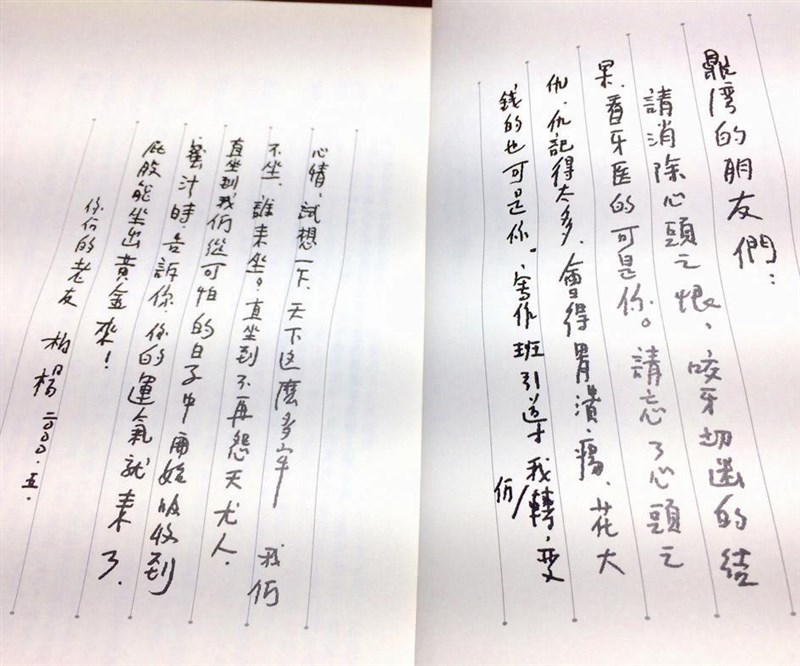 鼎灣的朋友們：
請消除心頭之恨，咬牙切齒的結
果，看牙医的可是你。請忘了心頭之
仇，仇記得太多，會得胃潰瘍、花大
錢的也可是你。寫作班引導我们轉变
心情，試想一下，天下这麽多牢 我们
不坐，誰来坐。直坐到不再怨天尤人．
直坐到我们從可怕的日子中開始吸收到
蜜汁時，告訴你，你的運氣就来了．
屁股能坐出黄金来！
你们的老友 柏楊 二〇〇〇．五．